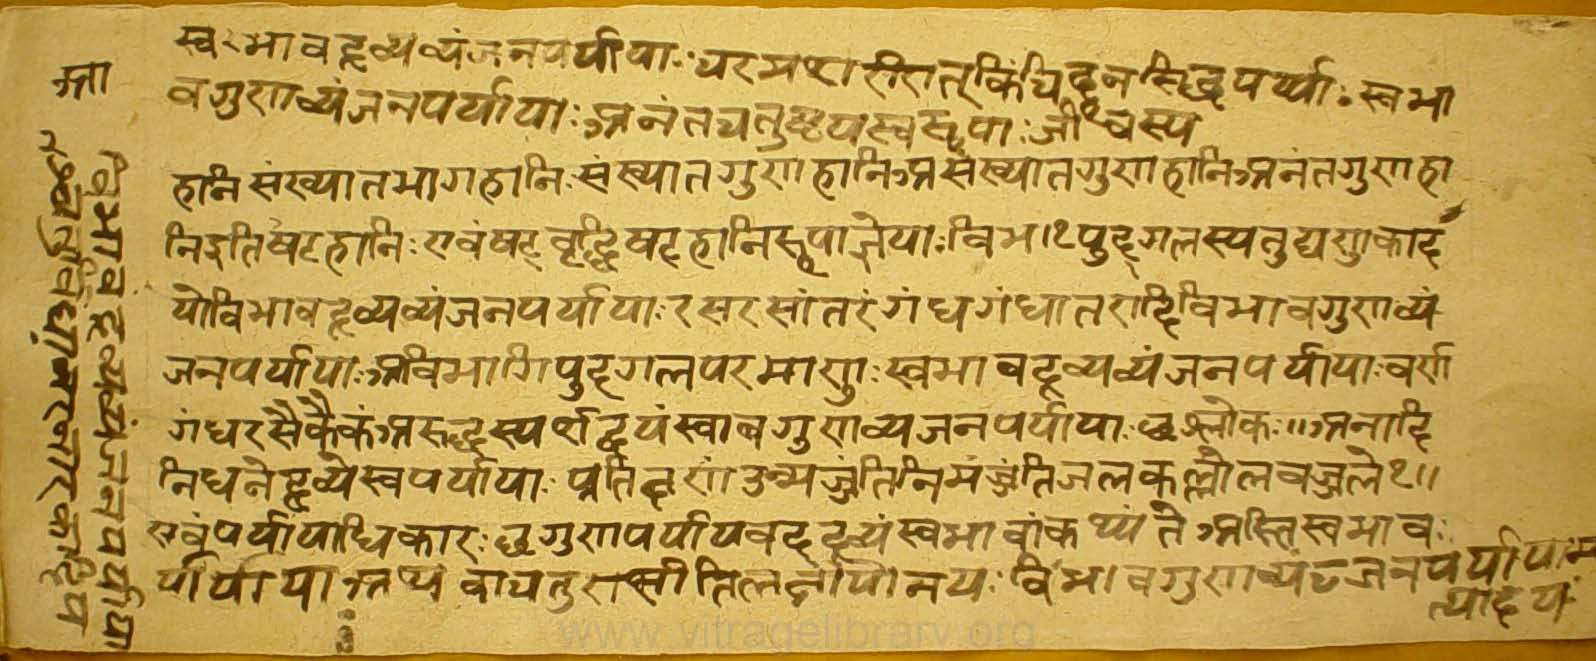 स्वरभावद्रव्यव्यंजनपर्यायाः चरमशरीरात् किंचिदून सिद्धपर्य्याः स्वभा
वगुणव्यंजनपर्यायाः अनंतचतुष्टयस्वरूपाः जीवस्य
हानि संख्यातभागहानिः संख्यातगुणहानि असंख्यातगुणहानि अनंतगुणहा
निइति षट्हानिः एवं षट्वृद्धिषट्हानिरूपा ज्ञेयाः विभा१ पुद्गलस्यतु द्यणुकाद
योविभावद्रव्यव्यंजनपर्यायाः रसरसांतरं गंधगंधातरादिविभावगुणव्यं
जनपर्यायाः अविभागिपुद्गलपरमाणुः स्वभावद्रव्यव्यंजनपर्यायाः वर्ण
गंधरसैकैकं अरुद्धस्पर्शद्वयं स्वावगुणव्यजनपर्यायाः छ श्लोकः॥ अनादि
निधने द्रव्ये स्वपर्यायाः प्रतिक्षणं उन्मज्जंति निमंज्जंति जलकल्लोलवज्जले१॥
एवं पर्यायाधिकारः छ गुणपर्यायवद्द्रव्यं स्वभावांकथ्यंते अस्तिस्वभावः
र्यार्याया अथ वा चतुराशीतिलक्षायोनयः विभावगुणव्यंजनपर्यायाम
त्यादयः
विभावंद्रव्यव्यंजनपर्याया
श्चतुर्विधानरनारकादिप